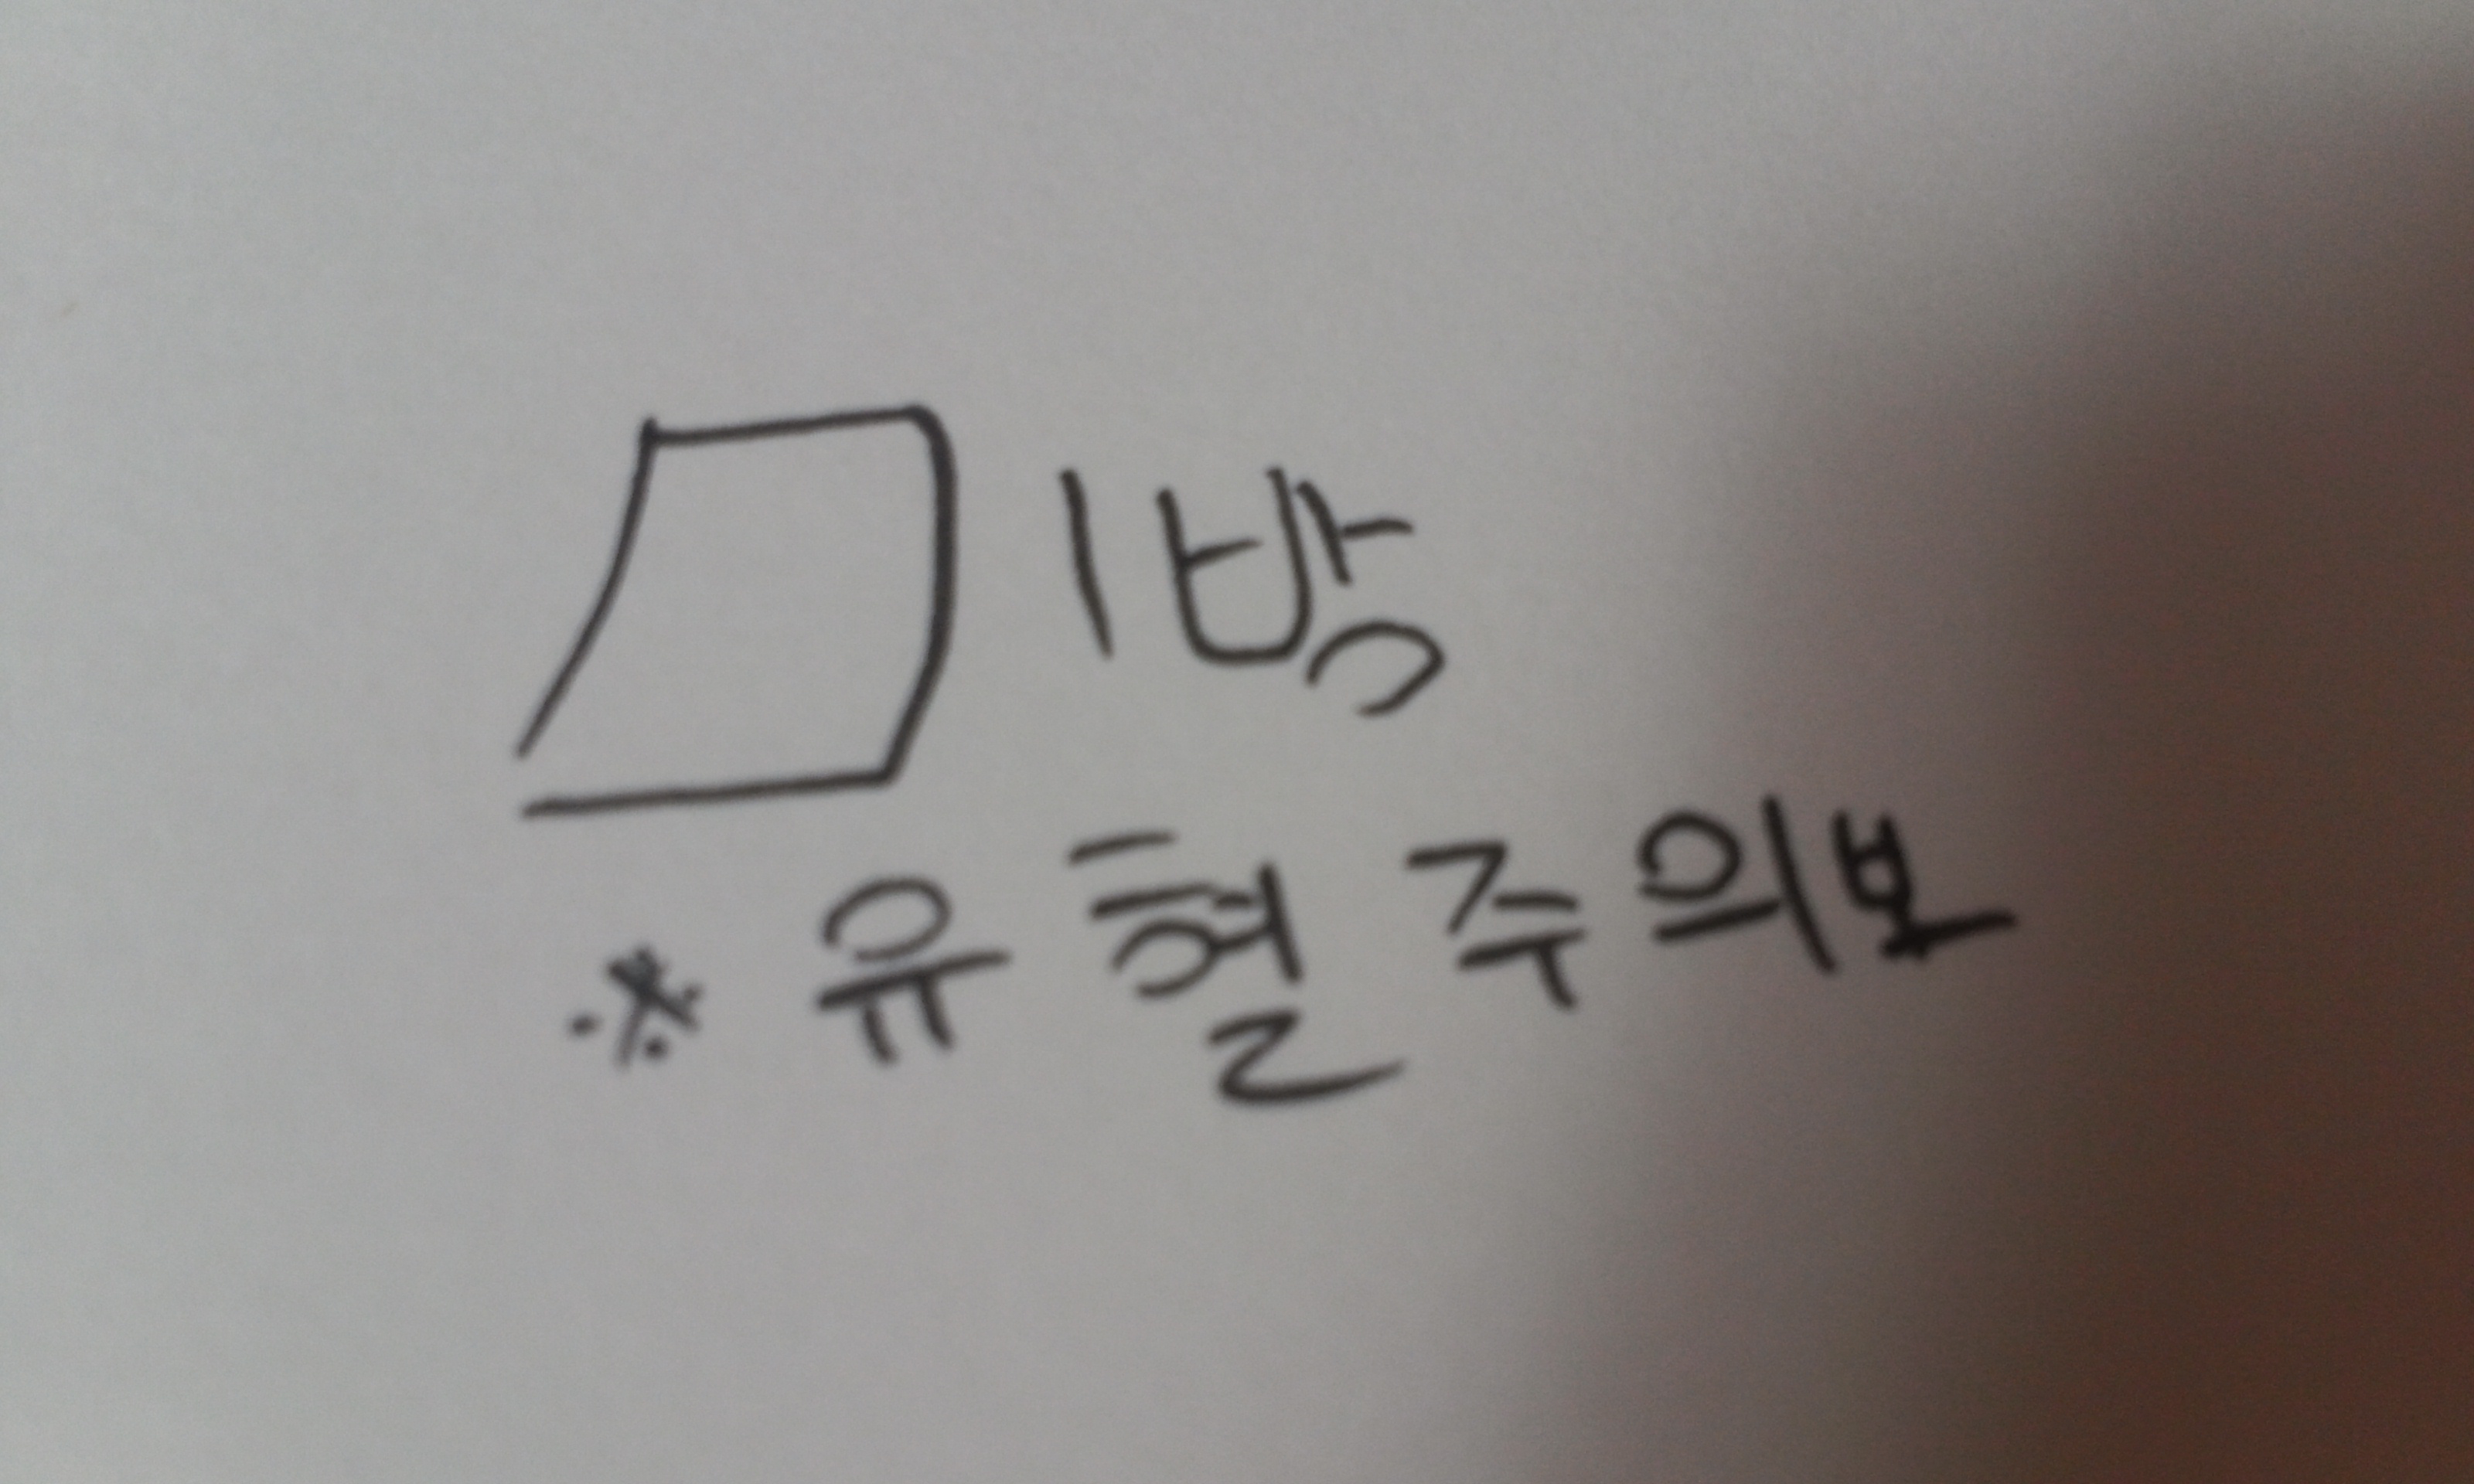 1방
※ 유혈주의보